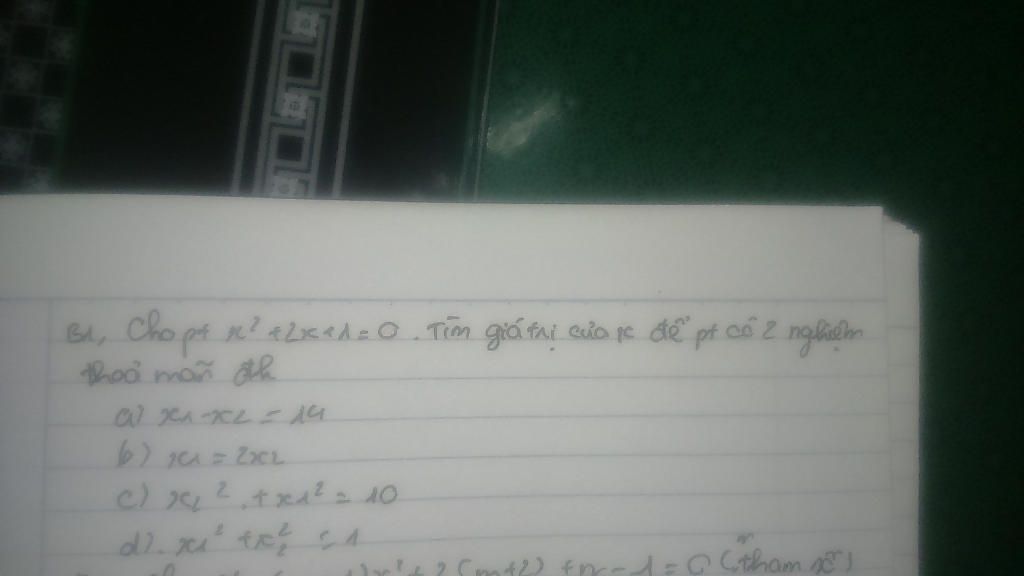 B1, Cho pt x² + 2x + 1 = 0. Tìm giá trị của k để pt có 2 nghiệm
thoả mãn đk
a) x1 - x2 = 14
b) x1 = 2x2
c) x2² + x1² = 10
d). x1² + x2² = 1
)x² + 2(m+2) + m - 1 = 0 (m tham số)